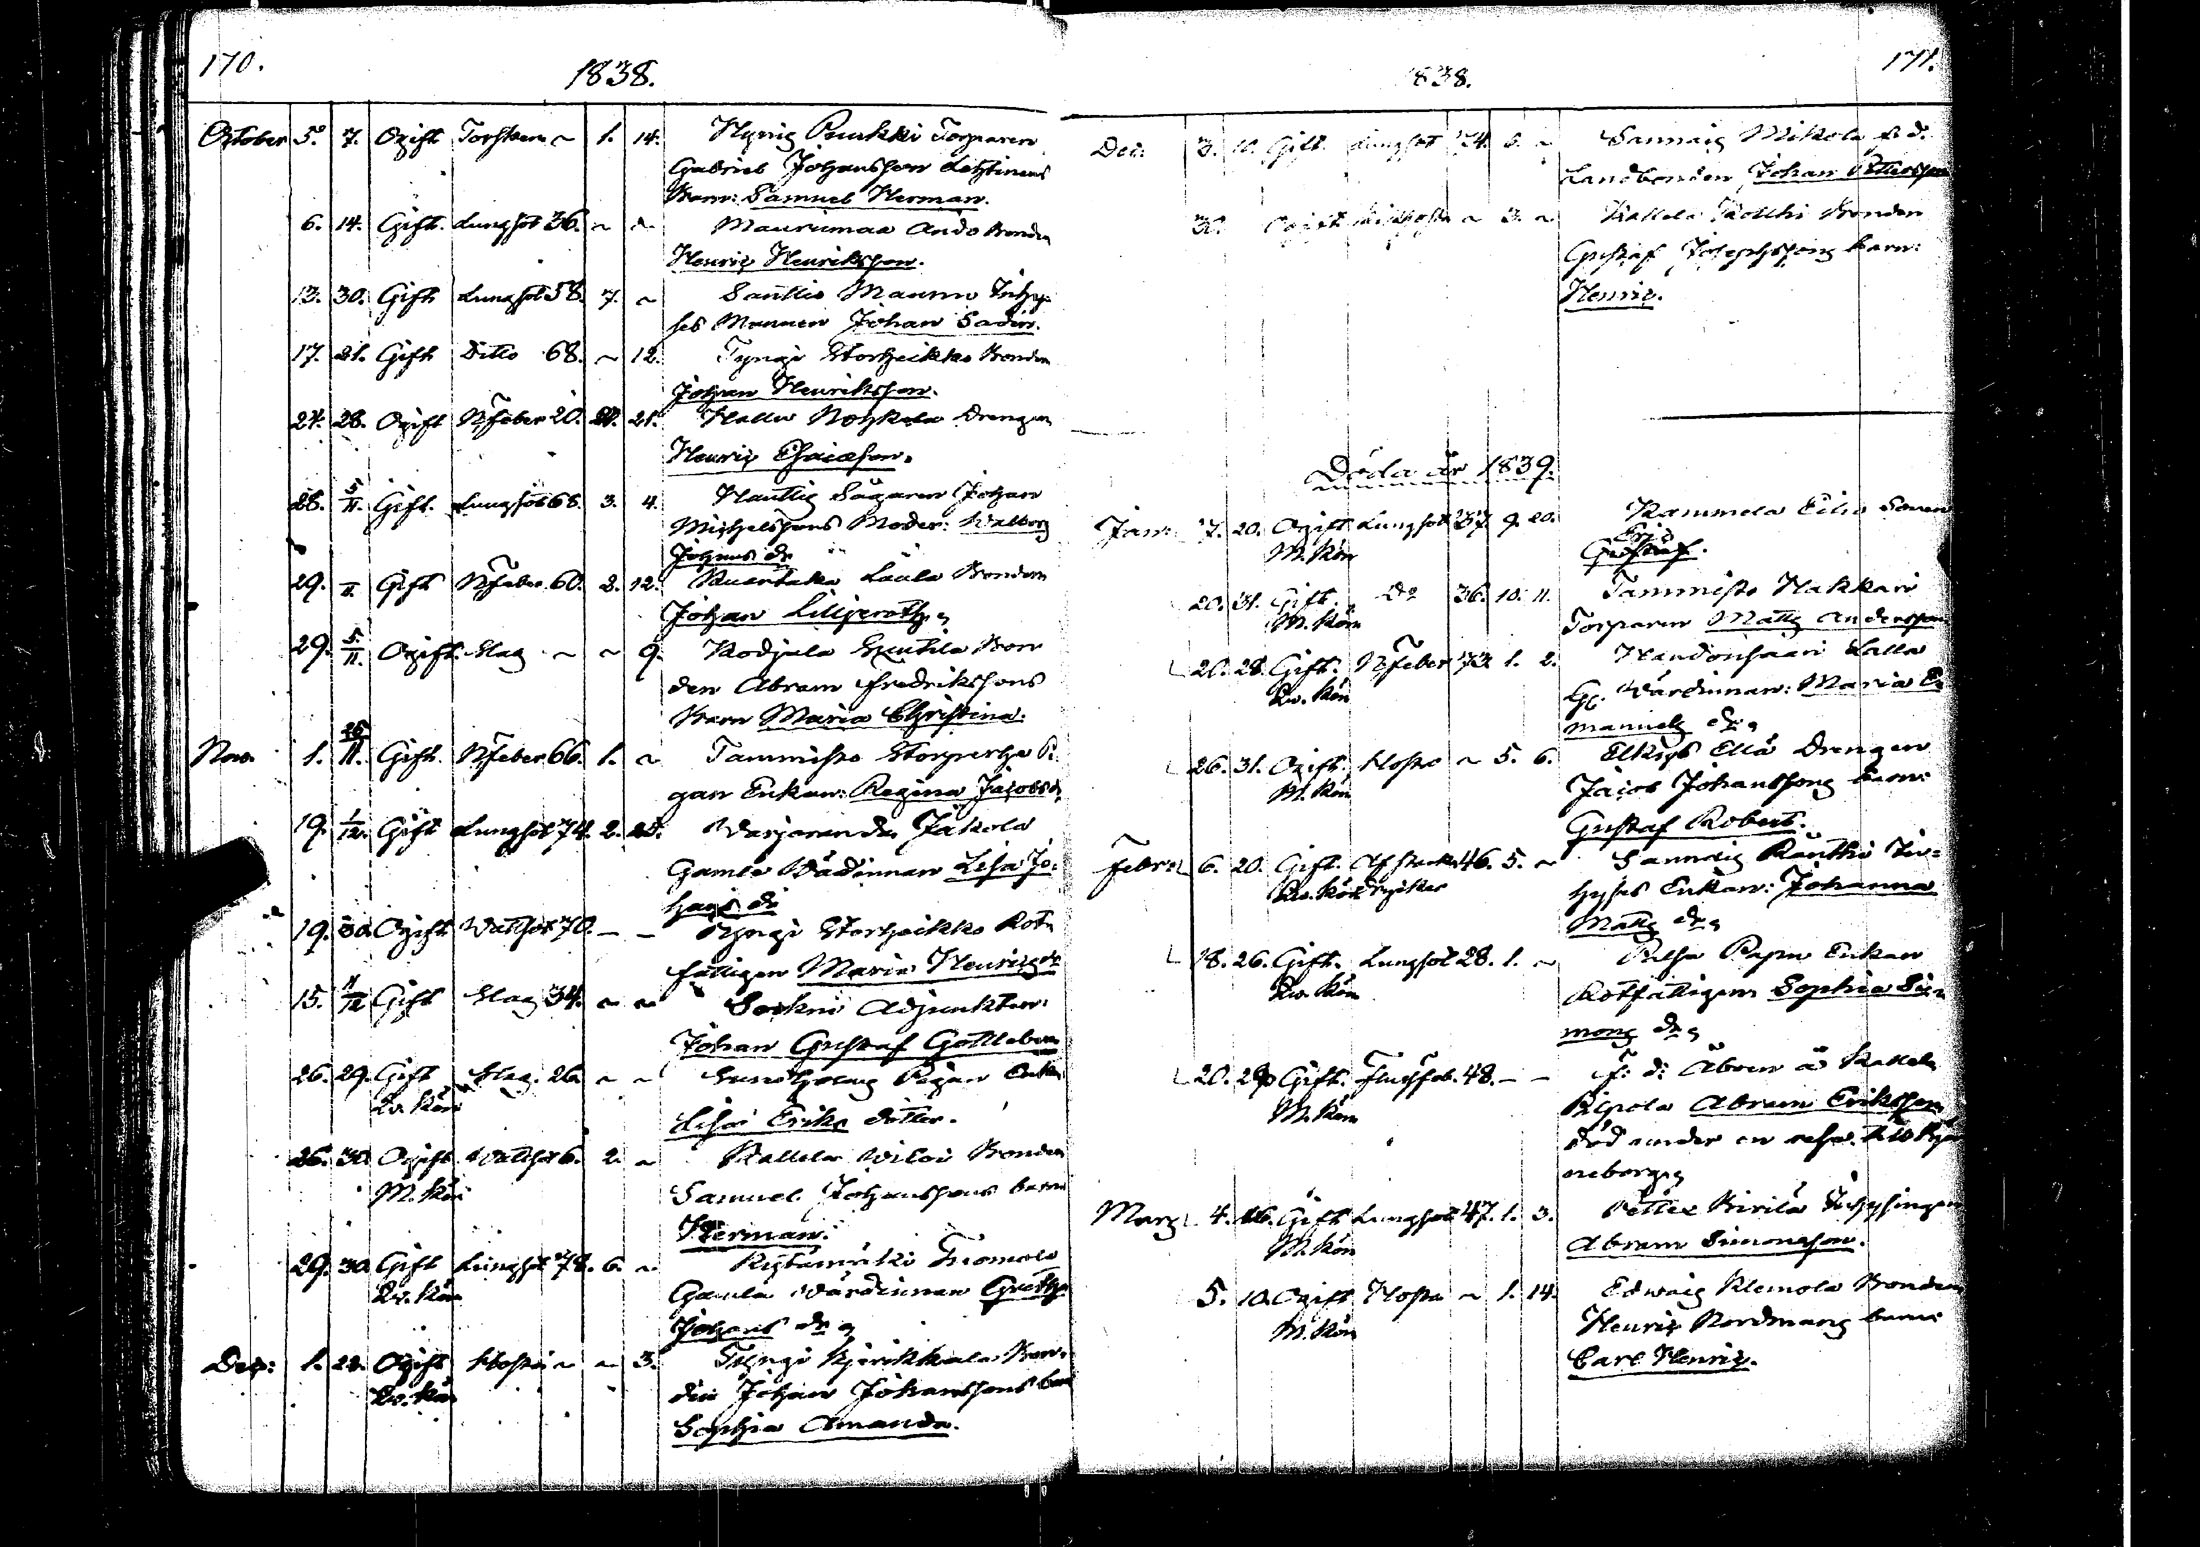 170.
1838.
October 5. 7. Ogift Torsken ~ 1. 14. Hyrvig Purkki Torparen
Gabriel Johansson Lehtinens
Barn: Samuel Herman.
6. 14. Gift. Lungsot 36. ~ ~ Maurumaa Ando Bonden
Henric Henriksson.
13. 30. Gift Lungsot 58. 7. ~ Santtio Maunu Inhy-
ses Mannen Johan Sadin.
17. 21. Gift Ditto 68. ~ 12. Tyngi Storheikko Bonden
Johan Henriksson.
24. 28. Ogift Nfeber 20. 21. Hallu Drengen
Henric Esaiasson.
28. 5/11. Gift. Lungsot 68. 3. 4. Hanttig Sågaren Johan
Michelssons Moder: Walborg
Johans dr
29. Gift Nfeber. 60. 2. 12. Laula Bonden
Johan Lilljeroth,
29. 5/11. Ogift. Slag ~ ~ 9. Kodjala Bon
den Abram Fredrikssons
Barn Maria Christina.
Nov. 1. 11. Gift. Nfeber 66. 1. ~ Tammisto Storpertho P.
gan Enkan: Regina Jacobs d.
19. 1/12. Gift Lungsot 74. 2. Warjaranda Jakola
Gamla Wärdinnan Lisa Jo-
hans dr
19. 30. Ogift Wattsot 70. — — Tyngi Storheikko Rot-
fattigen Maria Henrics dr
15. Gift Slag 34. ~ ~ Sockne Adjunkten:
Johan Gustaf Gottleben
26. 29. Gift Slag. 26. ~ ~ Pigan Enkan
Qv. Kön
Lisa Eriks dotter.
26. 30. Ogift Wattsot 6. 2. ~ Kallela Wiloi Bonden
M. Kön
Samuel Johanssons barn
Herman.
29. 30. Gift Lungsot 78. 6. ~ Tuomola
Qv. Kön
Gamla Wärdinnan Greta
Johans dr
Dec: 1. Ogift Hosta ~ ~ 3. Tyngi Bon-
Qv. Kön
den Johan Johanssons barn
Sophia Amanda.
1838.
171.
Dec. 3. 10. Gift. Lungsot 74. 6. ~ Sannäig Mikola f. d.
Landbonden Johan Pettersson
30. Ogift ~ 3. ~ Kallela Bonden
Gustaf Josephssons barn:
Henric.
Döda år 1839.
Jan: 7. 20. Ogift Lungsot 37. 9. 20. Kammela Eilio Sonen
M. Kön
Gustaf.
20. 31. Gift. Do 36. 10. 11. Tammisto Hakkari
M. Kön
Torparen Matts Andersson
20. 28. Gift. Nfeber 73. 1. 2. Haudonsaari Lalla
Qv. Kön
G. Wärdinnan: Maria E-
manuels dr,
26. 31. Ogift. Hosta ~ 5. 6. Elkiys Ellä Drengen
M. Kön
Jacob Johanssons barn:
Gustaf Robert.
Febr: 6. 20. Gift. Af starka 46. 5. ~ Sannäig Ränthi In-
Qv. Kön drycker
hyses Enkan: Johanna
Matts dr,
18. 26. Gift. Lungsot 28. 1. ~ Enkan
Qv. Kön
Rotfattigen Sophia Si-
mons dr,
20. Gift. 48. — — F: d: Åboen å Kallela
M. Kön
Pilpola Abram Eriksson
död under en resa till Björ
neborg,
Mars 4. 16. Gift Lungsot 47. 1. 3. Kirilä Inhysingen
M. Kön
Abram Simonsson.
5. 10. Ogift Hosta ~ 1. 14. Edwäig Klemola Bonden
M. Kön
Henric Nordmans barn:
Carl Henric.